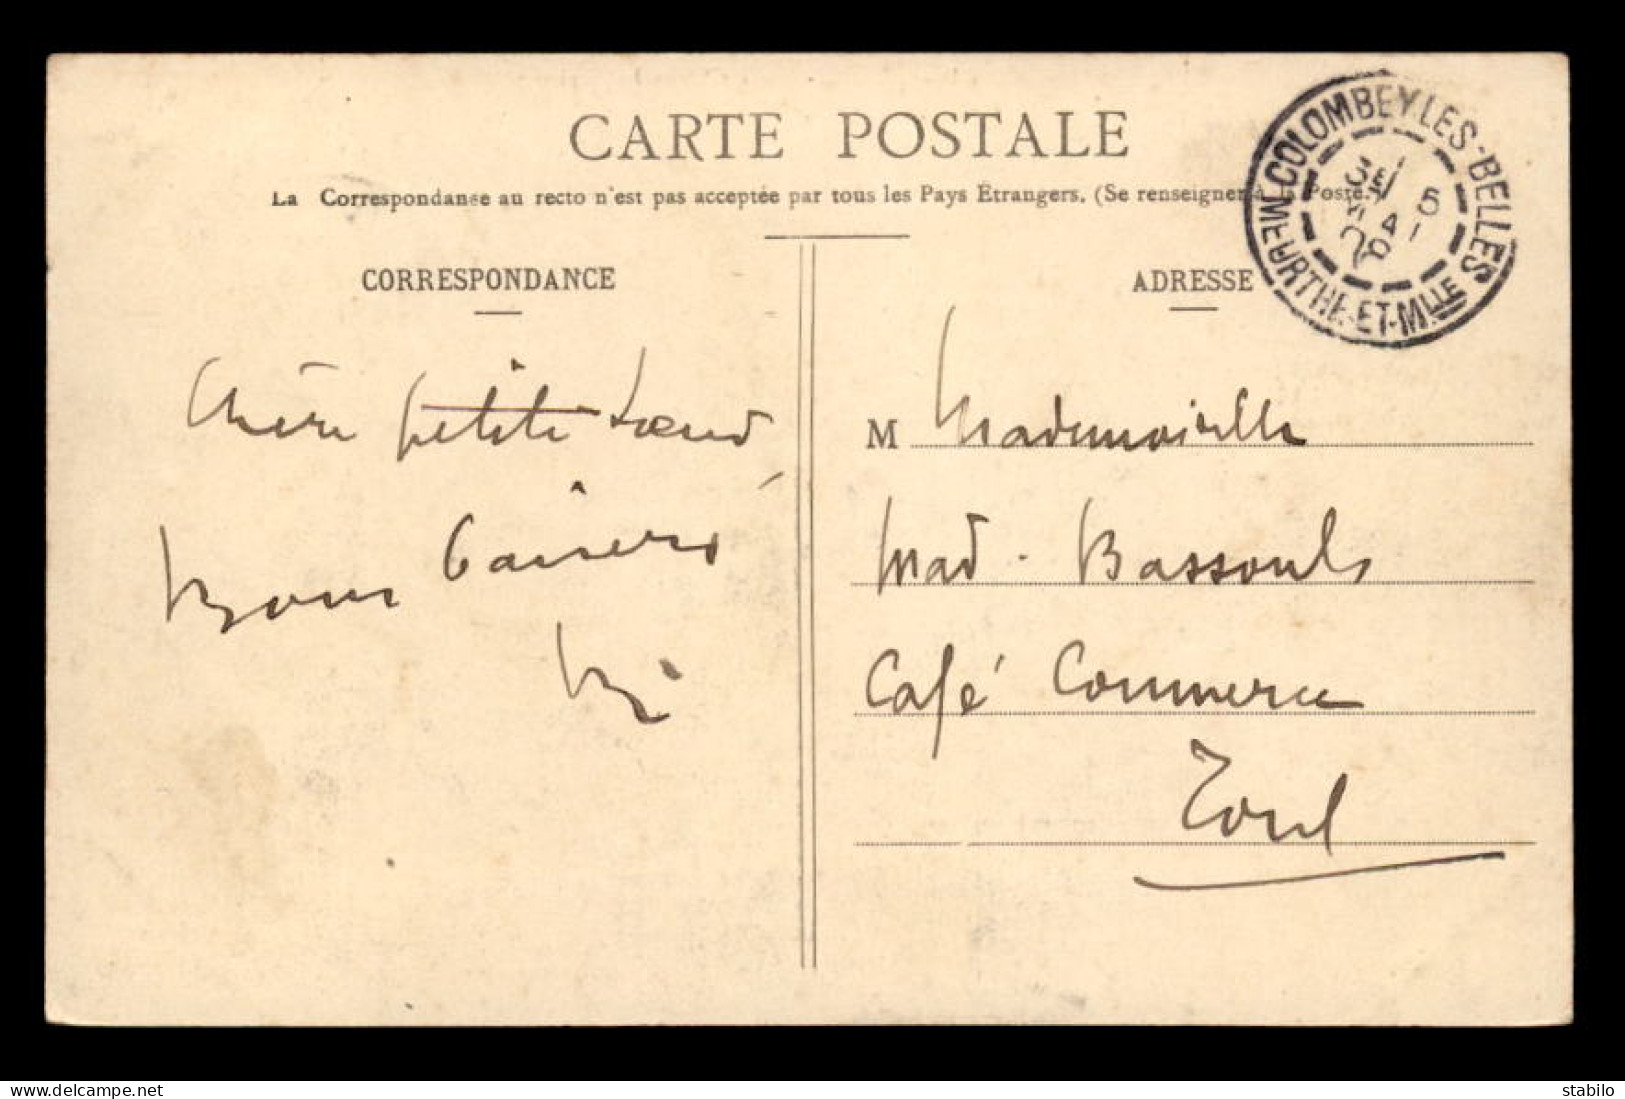 CARTE POSTALE
La Correspondanse au recto n'est pas acceptée par tous les Pays Étrangers. (Se renseigner à la Poste.)
CORRESPONDANCE
Chère petite sœur
Bons baisers
ADRESSE
COLOMBEY-LES-BELLES
MEURTHE-ET-MLLE
M Mademoiselle
Mad. Bassouls
Café Commerce
Toul
www.delcampe.net
stabilo